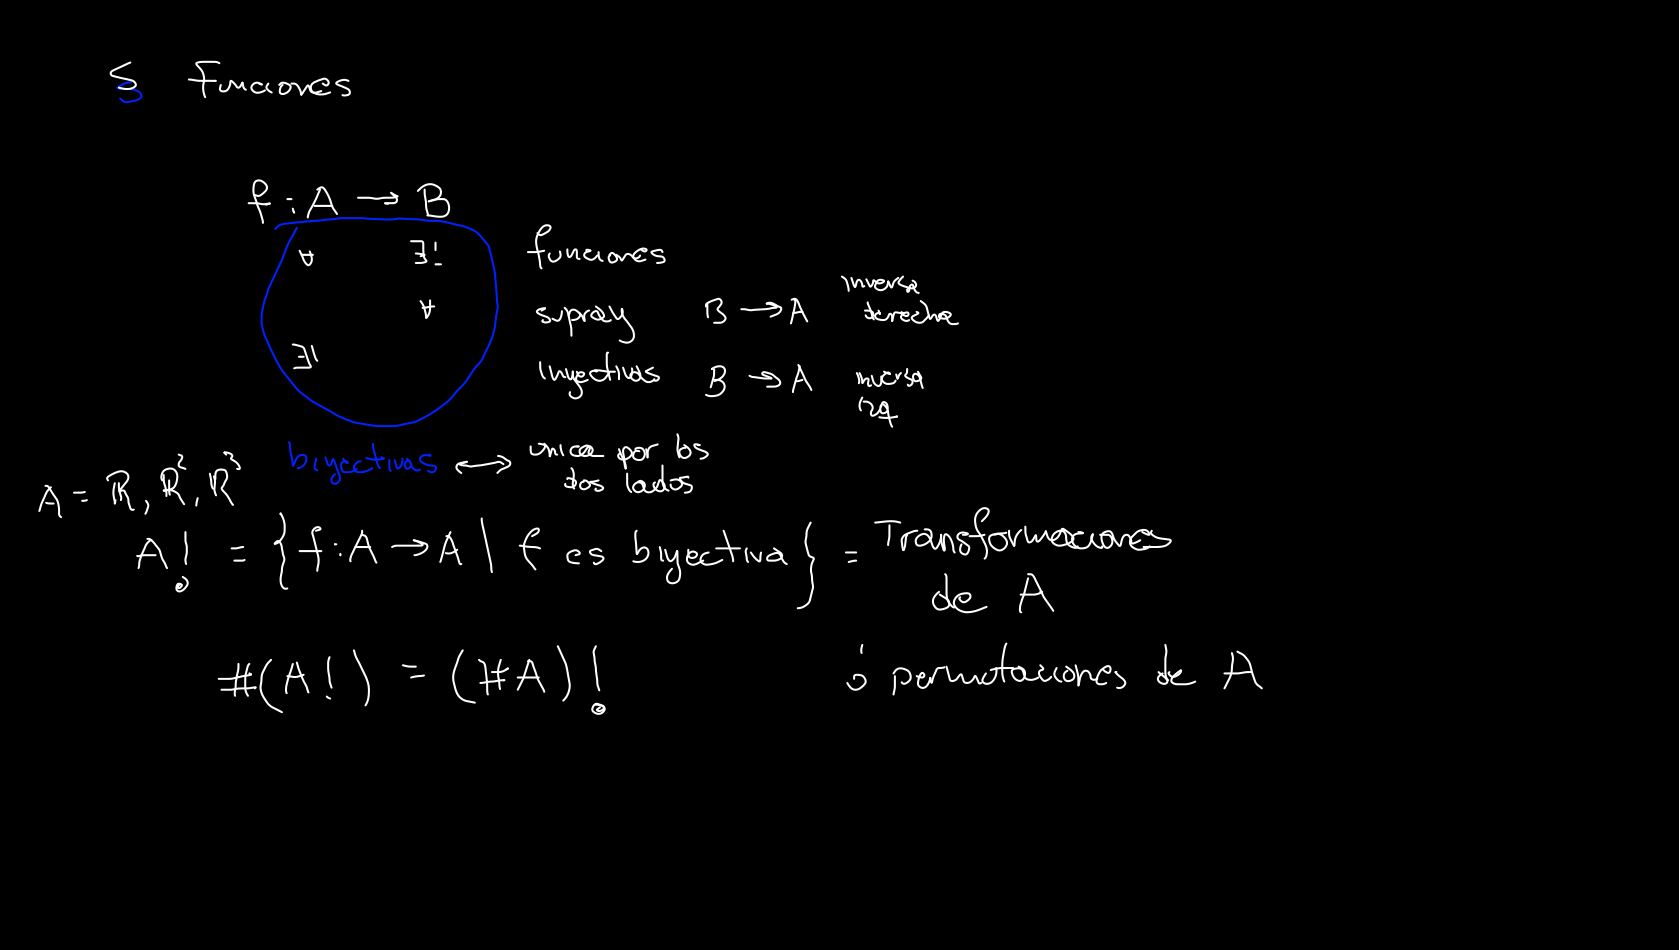 § Funciones
f : A → B
∀ ∃! funciones
∀ supray B → A inversa derecha
∃! inyectivas B → A inversa izq
biyectivas ↔ unica por los dos lados
A = ℝ, ℝ², ℝ³
A! = { f : A → A | f es biyectiva } = Transformaciones de A
#(A!) = (#A)! ó permutaciones de A